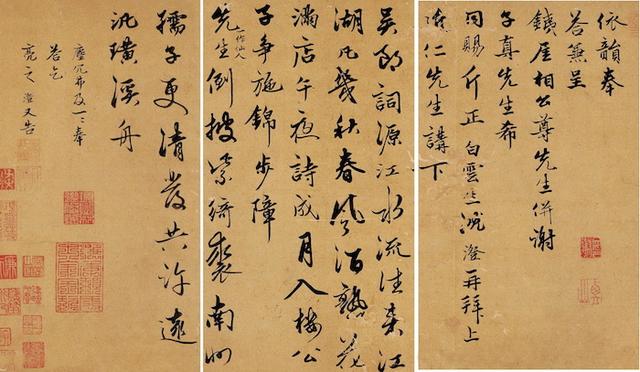 依韻奉
答兼呈
鐵厓相公尊先生併謝
子真先生希
同賜斤正 白雲 澄再拜上
仁先生講下
吳郎詞源江水流往來江
湖凡幾秋春風酒熟花
滿店午夜詩成月入樓公
子爭施錦步障
一作仙人
先生倒披紫綺裘南州
孺子更清發共許遠
汎璜溪舟
塵冗弗及一一奉
答乞
亮之 澄又告